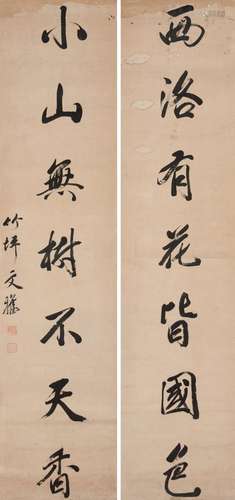 西洛有花皆國色
小山無樹不天香
竹坪文